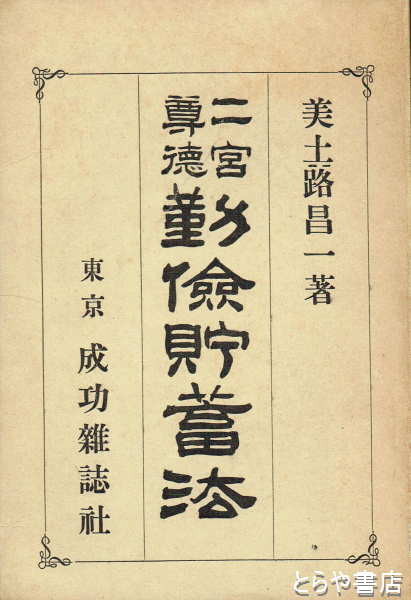 美土路昌一著
二宮
尊徳
勤儉貯蓄法
東京 成功雜誌社
とらや書店